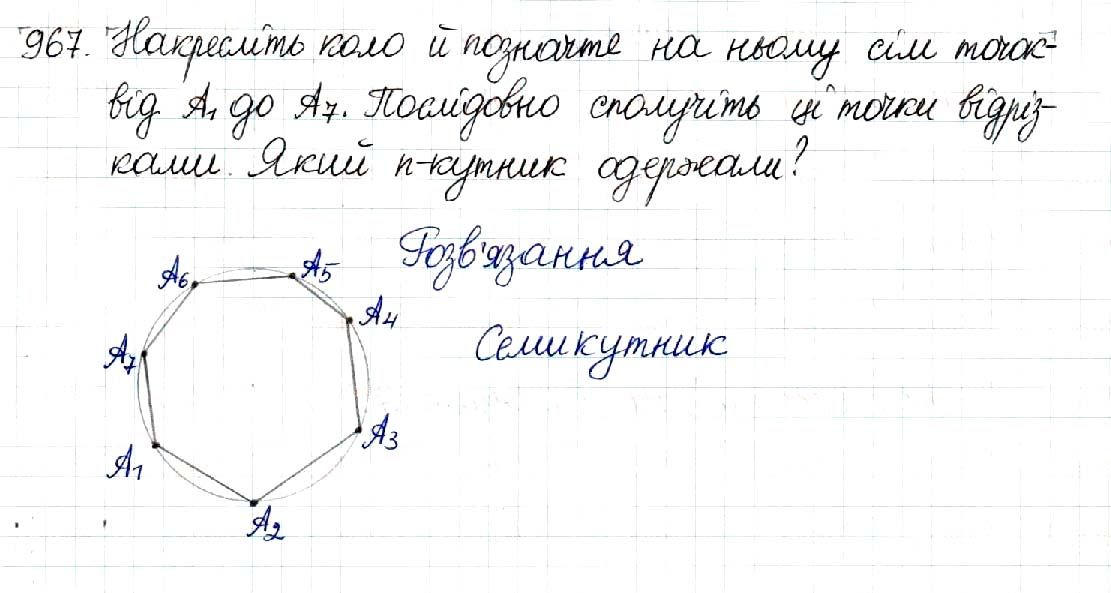 967. Накресліть коло й позначте на ньому сім точок-
від A₁ до A₇. Послідовно сполучіть ці точки відріз-
ками. Який n-кутник одержали?
Розв'язання
A₆ A₅
A₄
Семикутник
A₇
A₃
A₁
A₂